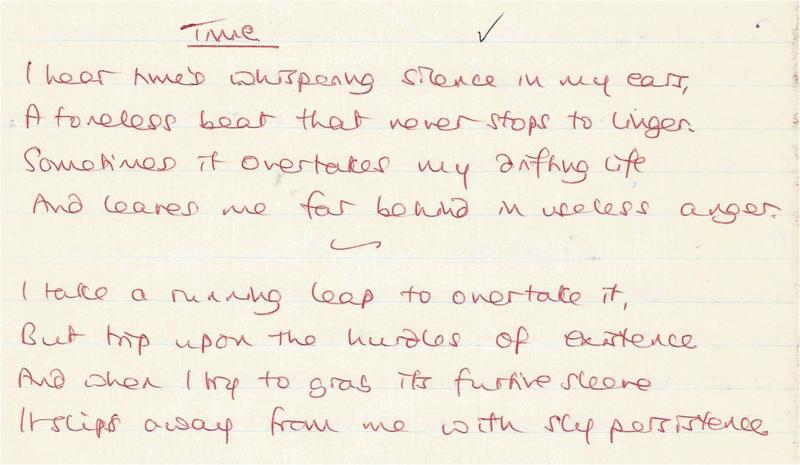 Time
I hear time's whispering silence in my ears,
A toneless beat that never stops to linger.
Sometimes it overtakes my drifting life
And leaves me far behind in useless anger.
I take a running leap to overtake it,
But trip upon the hurdles of existence
And when I try to grab its furtive sleeve
It slips away from me with sly persistence